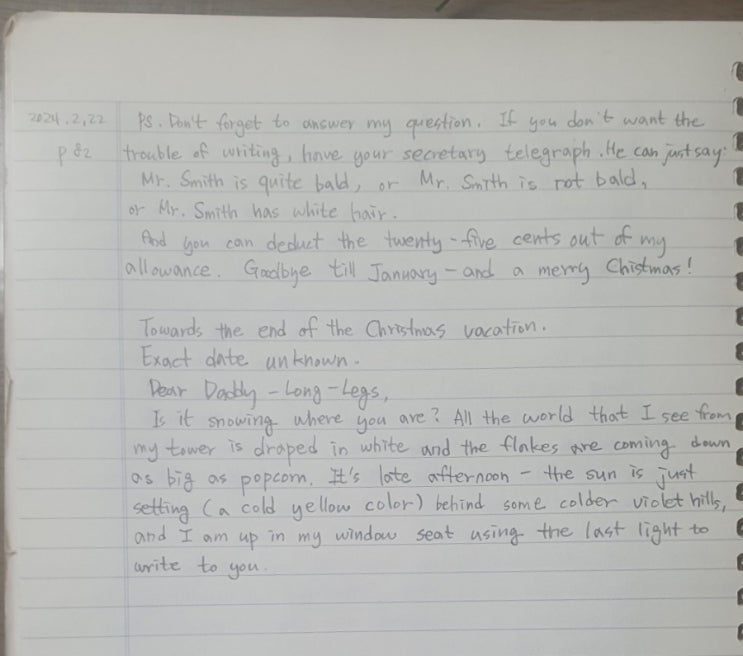 2024.2.22 PS. Don't forget to answer my question. If you don't want the
p 82 trouble of writing, have your secretary telegraph. He can just say:
Mr. Smith is quite bald, or Mr. Smith is not bald,
or Mr. Smith has white hair.
And you can deduct the twenty-five cents out of my
allowance. Goodbye till January - and a merry Chistmas!
Towards the end of the Christmas vacation.
Exact date unknown.
Dear Daddy-Long-Legs,
Is it snowing where you are? All the world that I see from
my tower is draped in white and the flakes are coming down
as big as popcorn. It's late afternoon - the sun is just
setting (a cold yellow color) behind some colder violet hills,
and I am up in my window seat using the last light to
write to you.